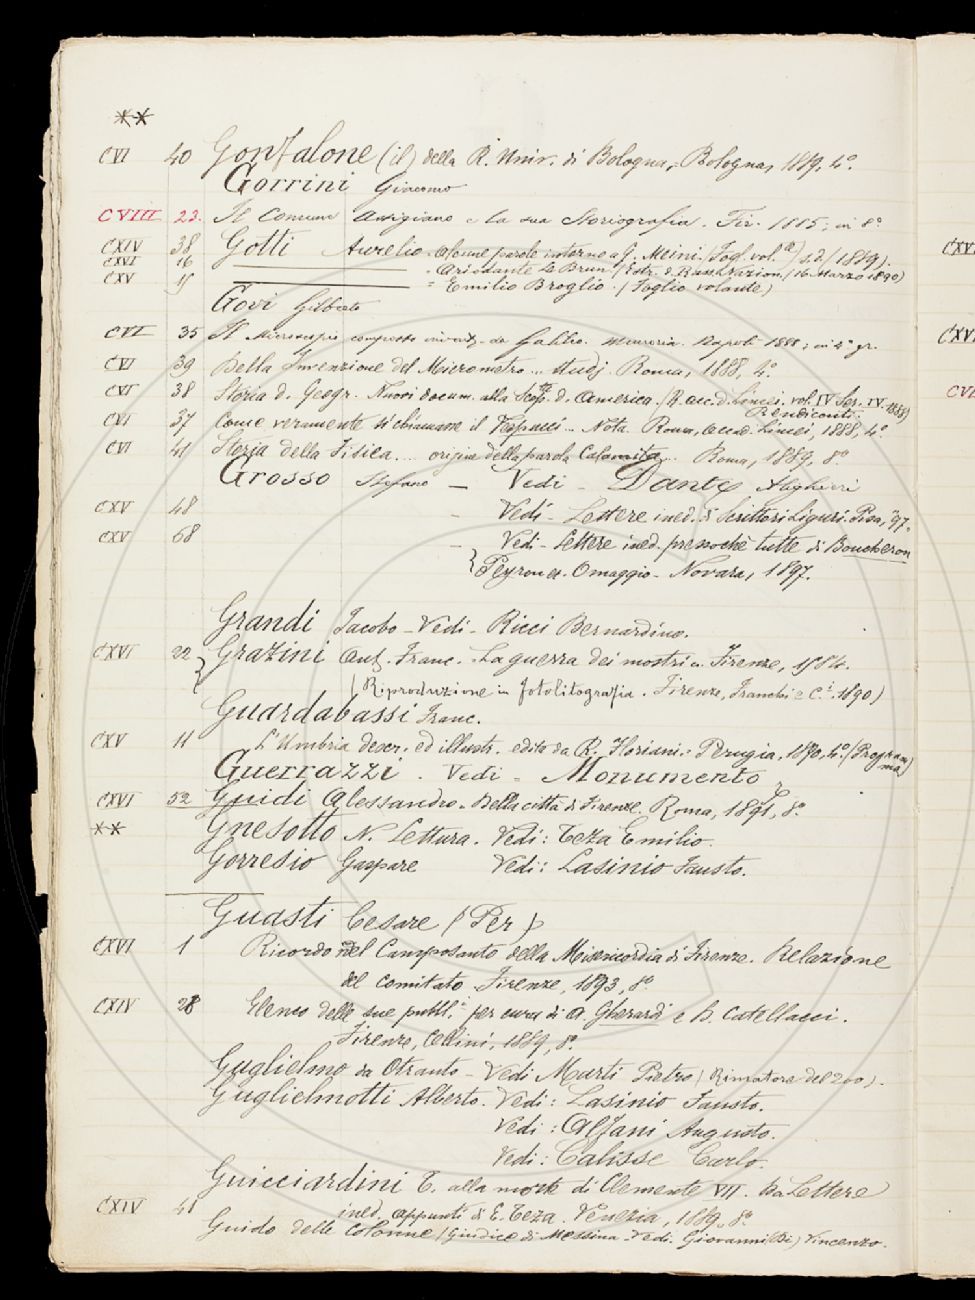 **
CVI 40 Gonfalone (il) della R. Univ. di Bologna, Bologna, 1889, 4°.
Gorrini Giacomo
CVIII 23. Il Comune Astigiano e la sua Storiografia. Fir. 1885; in 8°
CXIV 38 Gotti Aurelio. Alcune parole intorno a G. Meini. (Fogl. vol.) s.d. (1889).
CXVI 16 - Aristante Le Brun (Estr. d. Rass. Nazion. (16 Marzo 1890)
CXV 15 = Emilio Broglio. (Foglio volante)
Govi Gilberto
CVI 35 Il Microscopio composto inventato da Galileo. Memoria. Napoli 1888; in 4° gr.
CVI 39 Della Invenzione del Micrometro ... Studj. Roma, 1888, 4°.
CVI 38 Storia d. Geogr. Nuovi docum. alla Scop.ta d. America. (R. Acc. d. Lincei. vol. IV Ser. IV. 1888)
Rendiconti.
CVI 37 Come veramente si chiamasse il Vespucci... Nota. Roma, Accad. Lincei, 1888, 4°.
CVI 41 Storia della Fisica.... origine della parola Calamita... Roma, 1889, 8°
Grosso Stefano — Vedi - Dante Alighieri
CXV 48 - Vedi - Lettere ined. di Scrittori Liguri. Pisa, '97.
CXV 68 — Vedi - Lettere ined. pressochè tutte di Boucheron
Peyron ec. Omaggio - Novara, 1897.
Grandi Jacobo - Vedi - Ricci Bernardino.
CXVI 22 Grazini Ant. Franc. - La guerra dei mostri. Firenze, 1584.
(Riproduzione in fotolitografia. Firenze, Franchi e C.i 1890)
Guardabassi Franc.
CXV 11 L'Umbria descr. ed illustr. edito da R. Floriani. Perugia, 1870, 4° (Programma)
Guerrazzi. Vedi - Monumento
CXVI 52 Guidi Alessandro. Della città di Firenze. Roma, 1891, 8°
** Gnesotto N. Lettura. Vedi: Teza Emilio.
Gorresio Gaspare Vedi: Lasinio Fausto.
Guasti Cesare (Per)
CXVI 1 Ricordo nel Camposanto della Misericordia di Firenze. Relazione
del comitato. Firenze, 1893, 8°
CXIV 28 Elenco delle sue pubbl.i per cura di A. Gherardi e D. Catellacci.
Firenze, Cellini, 1889, 8°.
Guglielmo da Otranto - Vedi Marti Pietro (Rimatore del 200).
Guglielmotti Alberto. Vedi: Lasinio Fausto.
Vedi: Alfani Augusto.
Vedi: Calisse Carlo.
Guicciardini E. alla morte di Clemente VII. Da Lettere
CXIV 41 ined. appunti di E. Teza. Venezia, 1889, 8°
Guido delle Colonne (Giudice di Messina - Vedi. Giovanni (Di) Vincenzo.
CXV
CXV
CVI